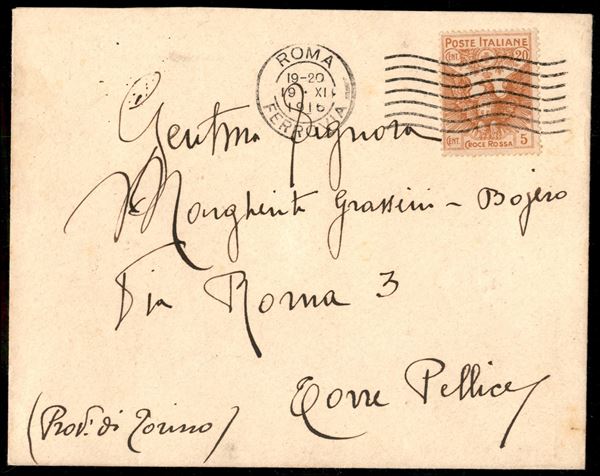 ROMA
19-20
19 · XI
1916
FERROVIA
POSTE ITALIANE
CENT. 20
CENT. 5
CROCE ROSSA
Gentma Signora
Margherita Grassini - Bojero
Via Roma 3
Torre Pellice
(Prov. di Torino)